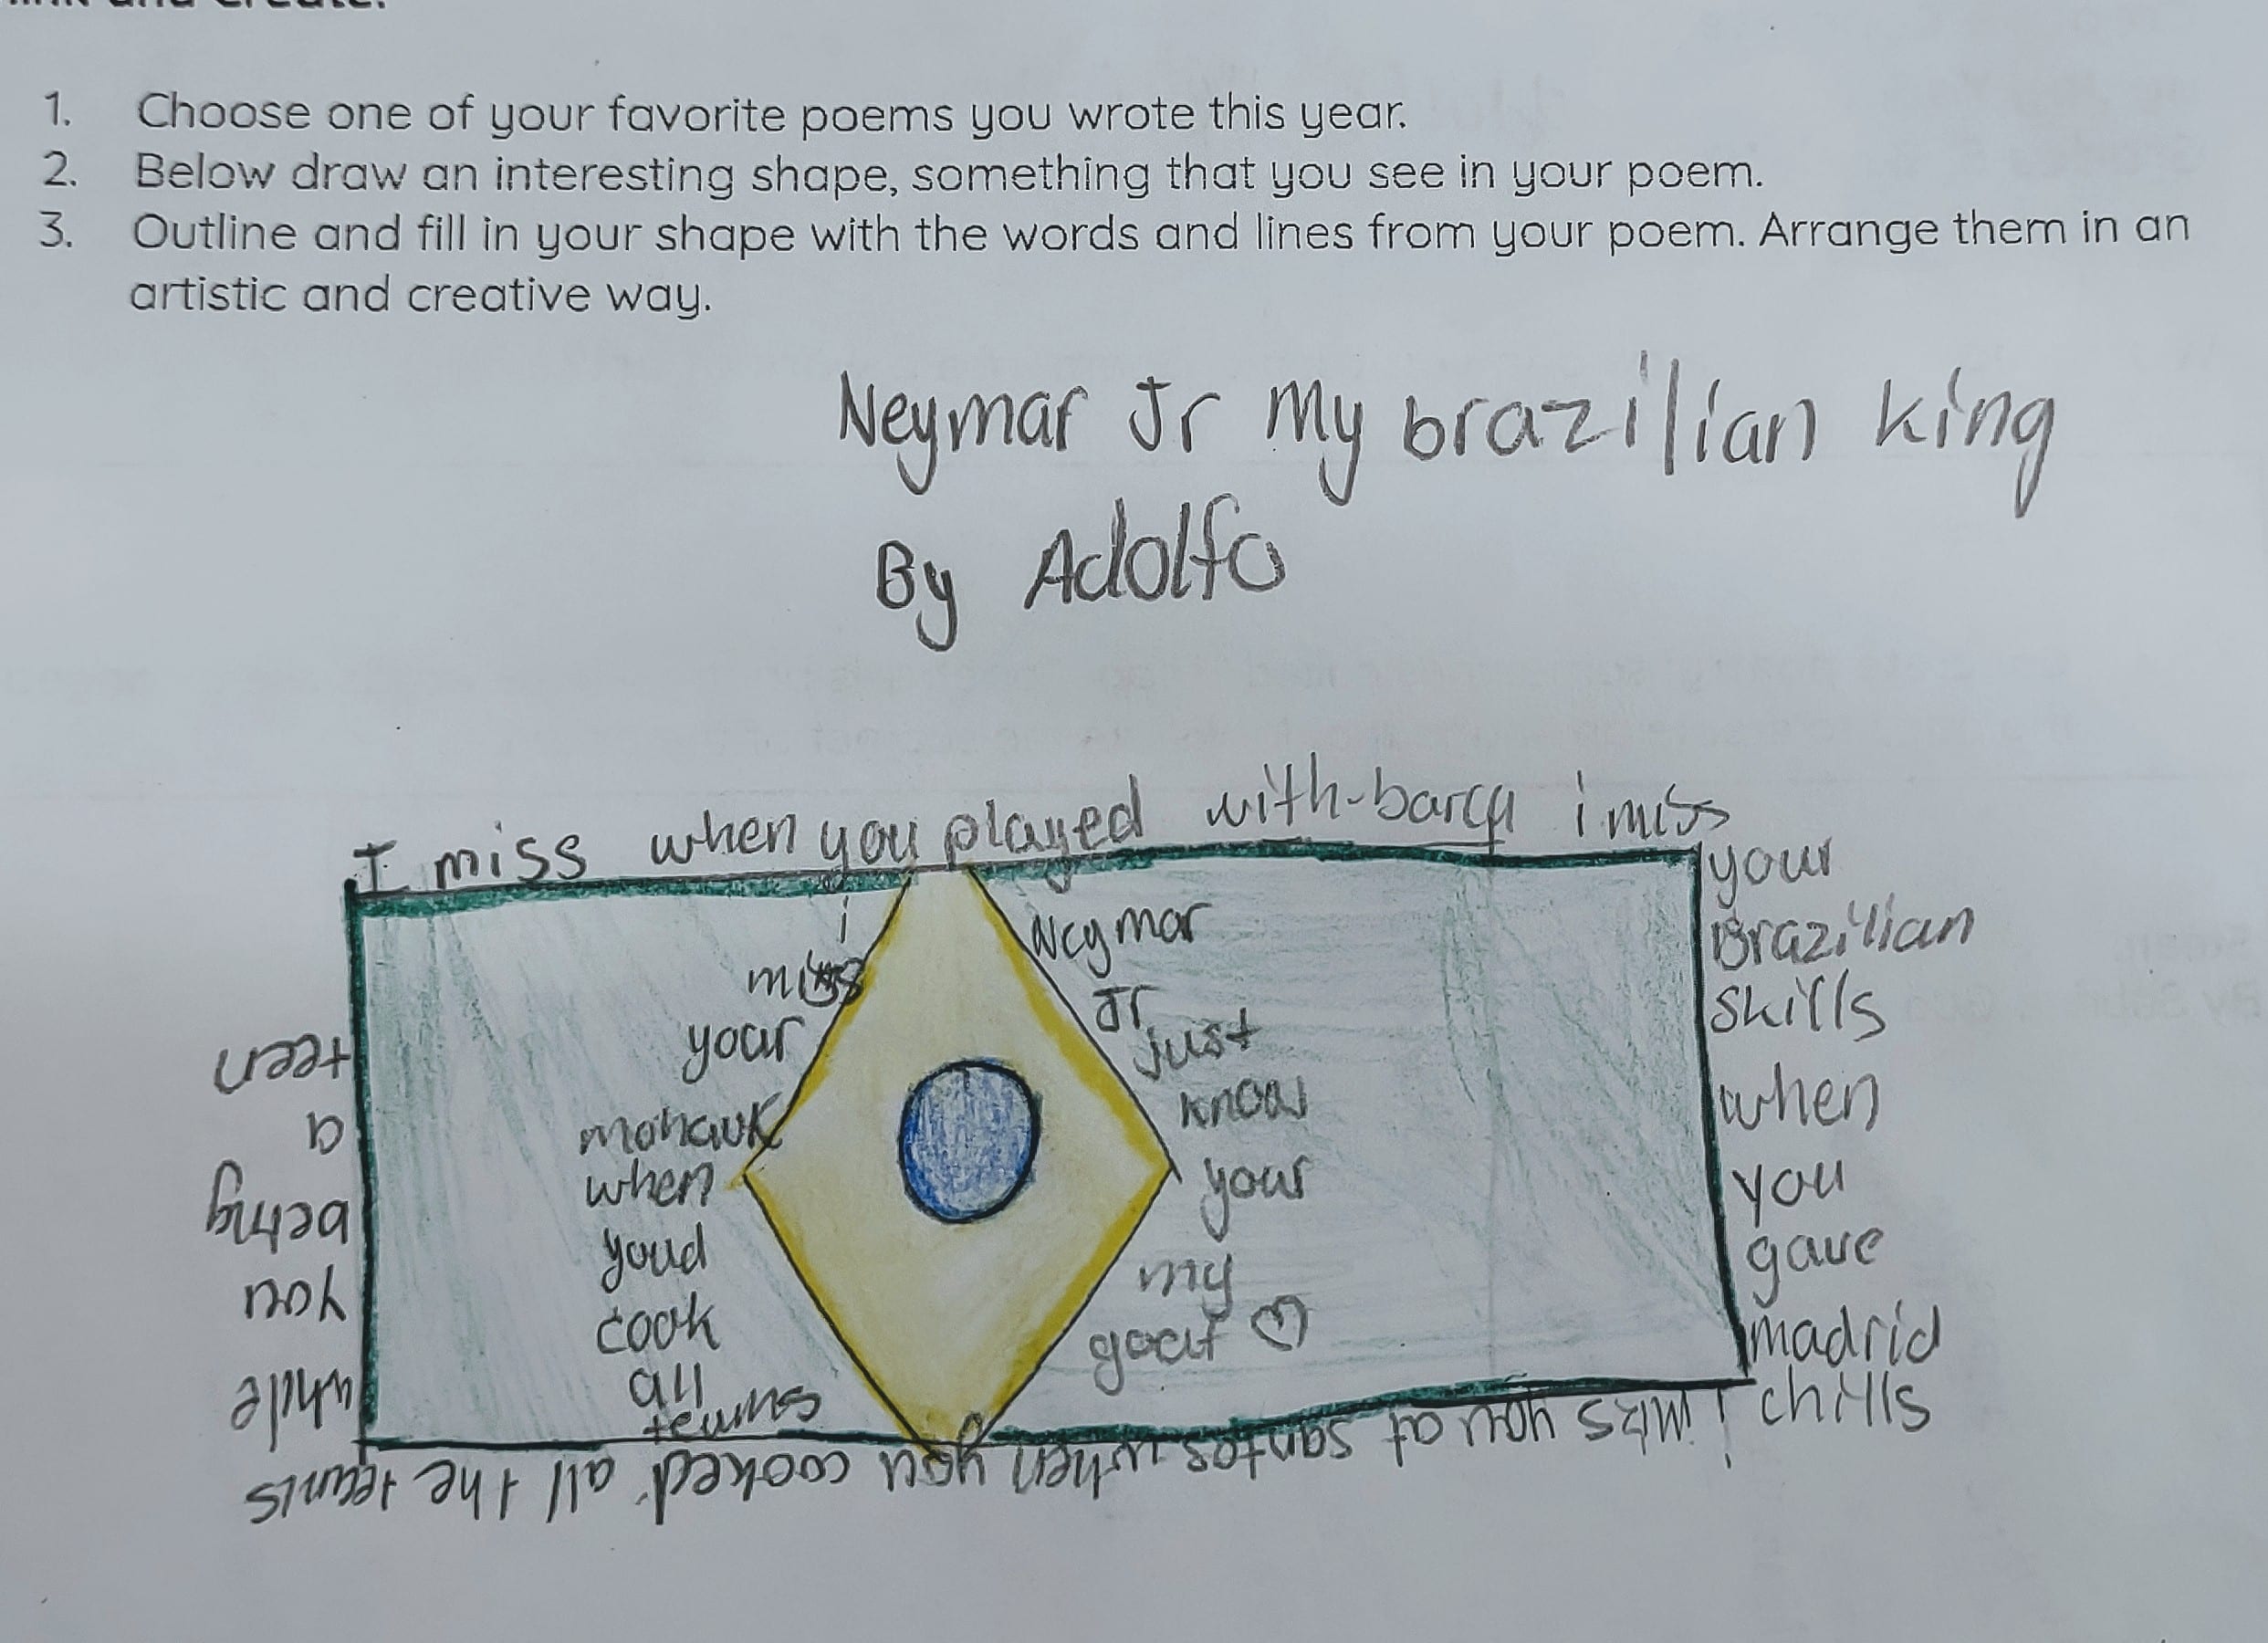 1. Choose one of your favorite poems you wrote this year.
2. Below draw an interesting shape, something that you see in your poem.
3. Outline and fill in your shape with the words and lines from your poem. Arrange them in an
artistic and creative way.
Neymar Jr My brazilian king
By Adolfo
I miss when you played with barca i miss
your
Brazilian
skills
when
you
gave
madrid
chills
i miss you at santos when you cooked all the teams
while
you
being
a
teen
i
miss
your
mohawk
when
youd
cook
all
teams
Neymar
Jr
just
know
your
my
goat ♡